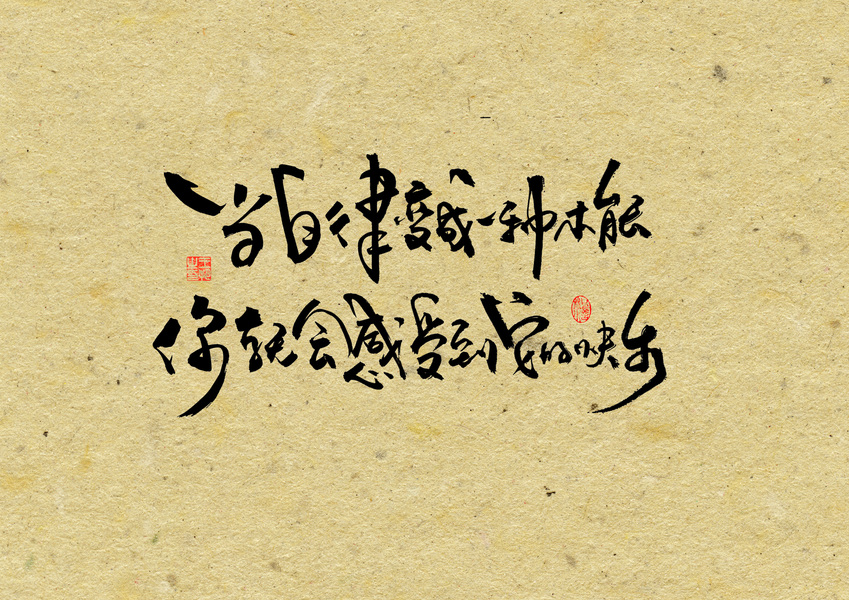 当自律变成一种本能
你就会感受到它的快乐